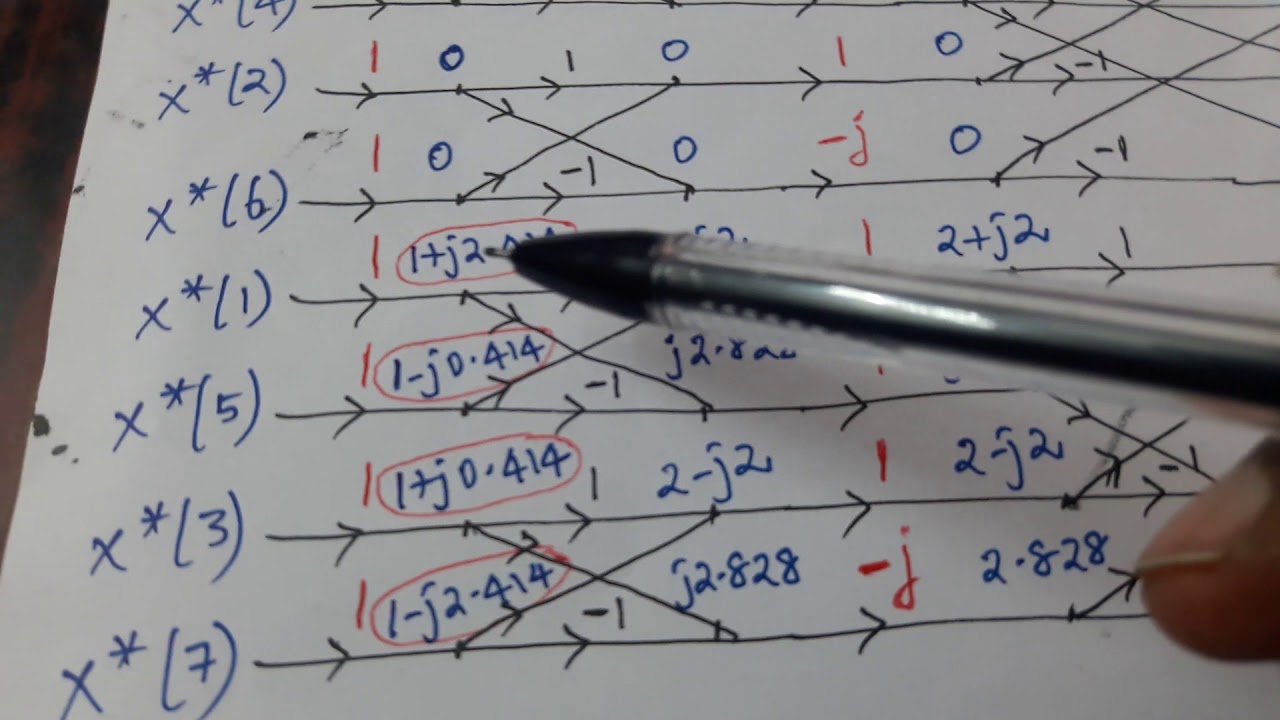 X*(4)
1 0 1 0 1 0 -1
X*(2)
1 0 -1 0 -j 0 -1
X*(6)
1 1+j2 1 2+j2 1
X*(1)
1 1-j0.414 -1
X*(5)
1 1+j0.414 1 2-j2 1 2-j2 -1
X*(3)
1 1-j2.414 -1 j2.828 -j 2.828
X*(7)